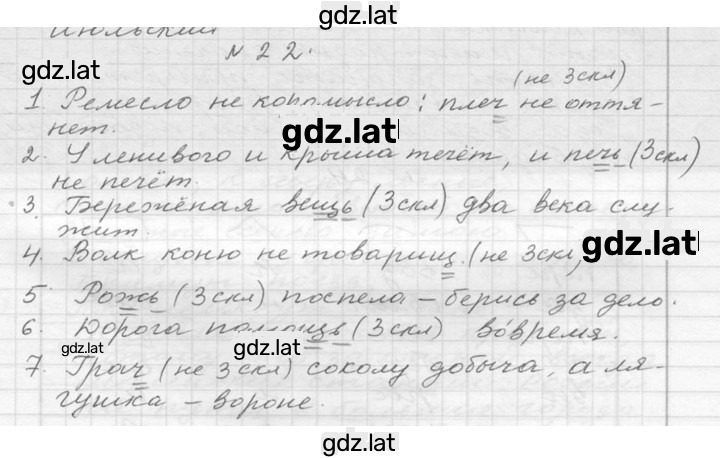 gdz.lat
Июльский
gdz.lat
N 22.
(не 3скл)
1. Ремесло не коромысло: плеч не оття-
нет.
gdz.lat
2. У ленивого и крыша течёт, и печь (3скл)
не печёт.
3. Бережёная вещь (3скл) два века слу-
жит.
gdz.lat
4. Волк коню не товарищ. (не 3скл)
5 Рожь (3скл) поспела – берись за дело.
6. Дорога помощь (3скл) во́время.
gdz.lat
gdz.lat
7. Грач (не 3скл) соколу добыча, а ля-
гушка – вороне.
gdz.lat